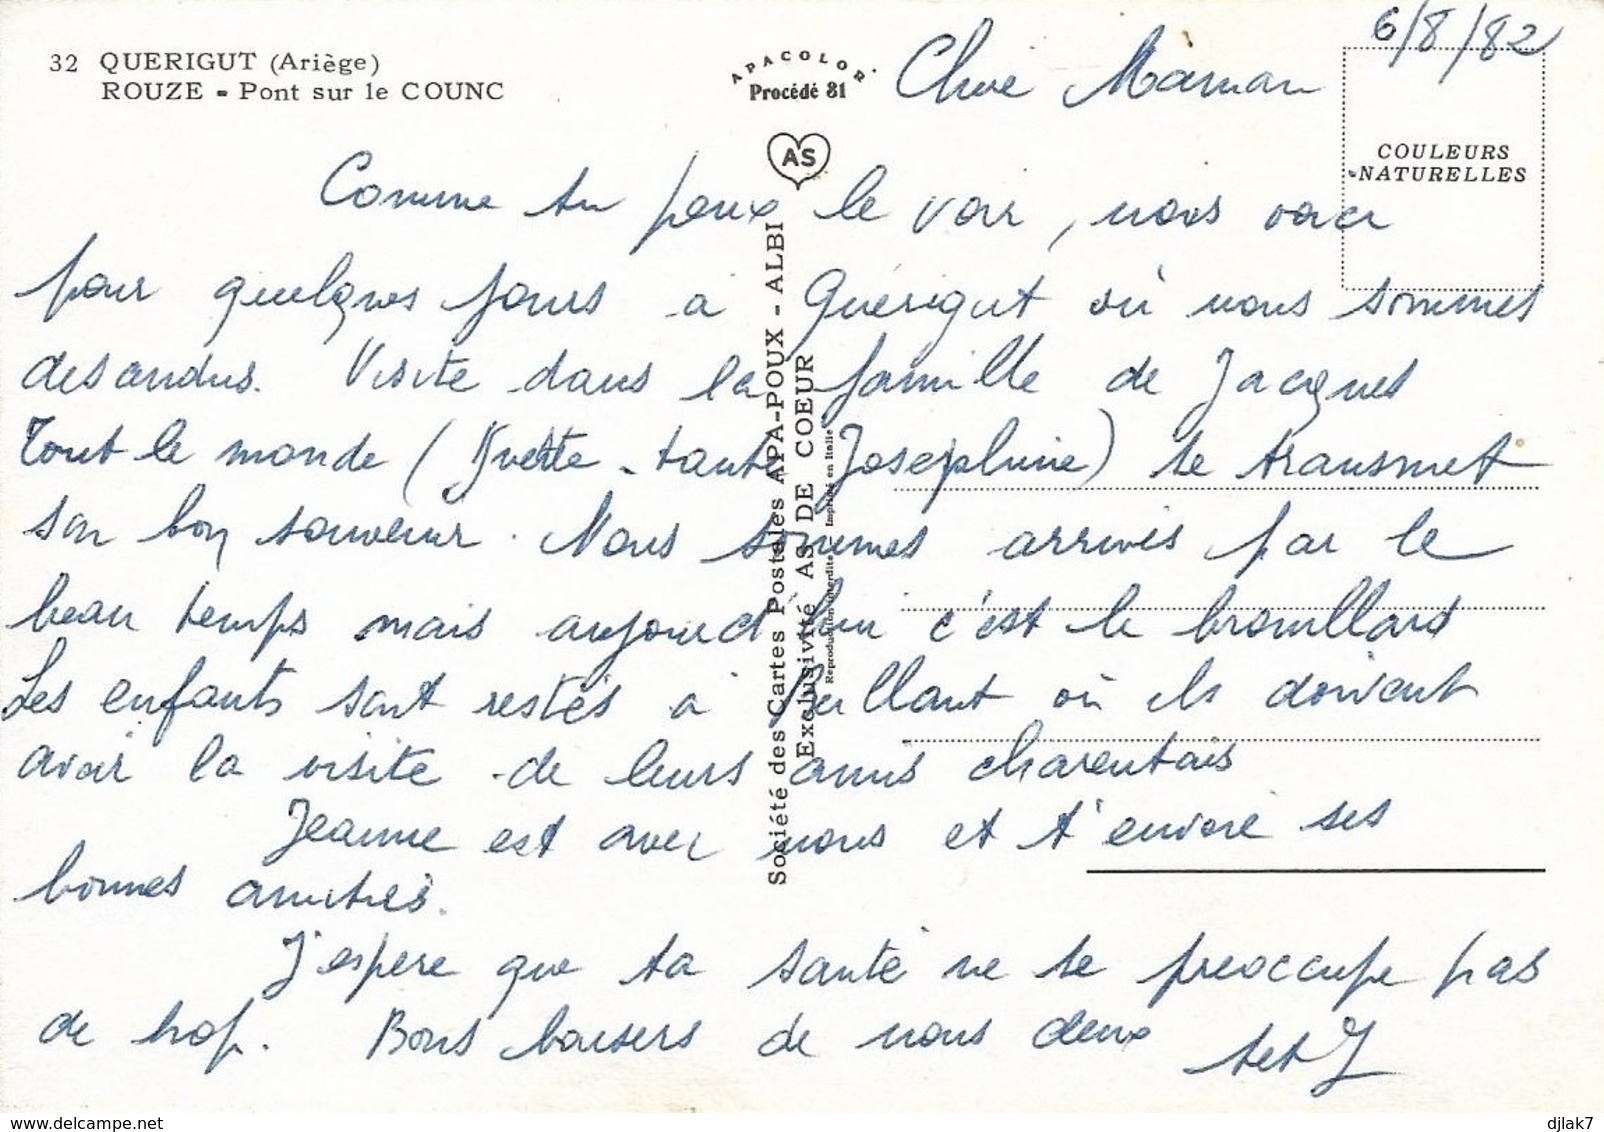 6/8/82
32 QUERIGUT (Ariège)
ROUZE - Pont sur le COUNC
APACOLOR
Procédé 81
AS
COULEURS
NATURELLES
Société des Cartes Postales APA-POUX - ALBI
Exclusivité AS DE COEUR
Reproduction interdite - Imprimé en Italie
Chère Maman
Comme tu peux le voir, nous voici
pour quelques jours à Quérigut où nous sommes
descendus. Visite dans la famille de Jacques
Tout le monde (Yvette - tante Josephine) te transmet
son bon souvenir. Nous sommes arrivés par le
beau temps mais aujourd'hui c'est le brouillard
Les enfants sont restés à où ils doivent
avoir la visite de leurs amis charentais
Jeanne est avec nous et t'envoie ses
bonnes amitiés.
J'espère que ta santé ne te préoccupe pas
de trop. Bons baisers de nous deux
J
djlak7
www.delcampe.net